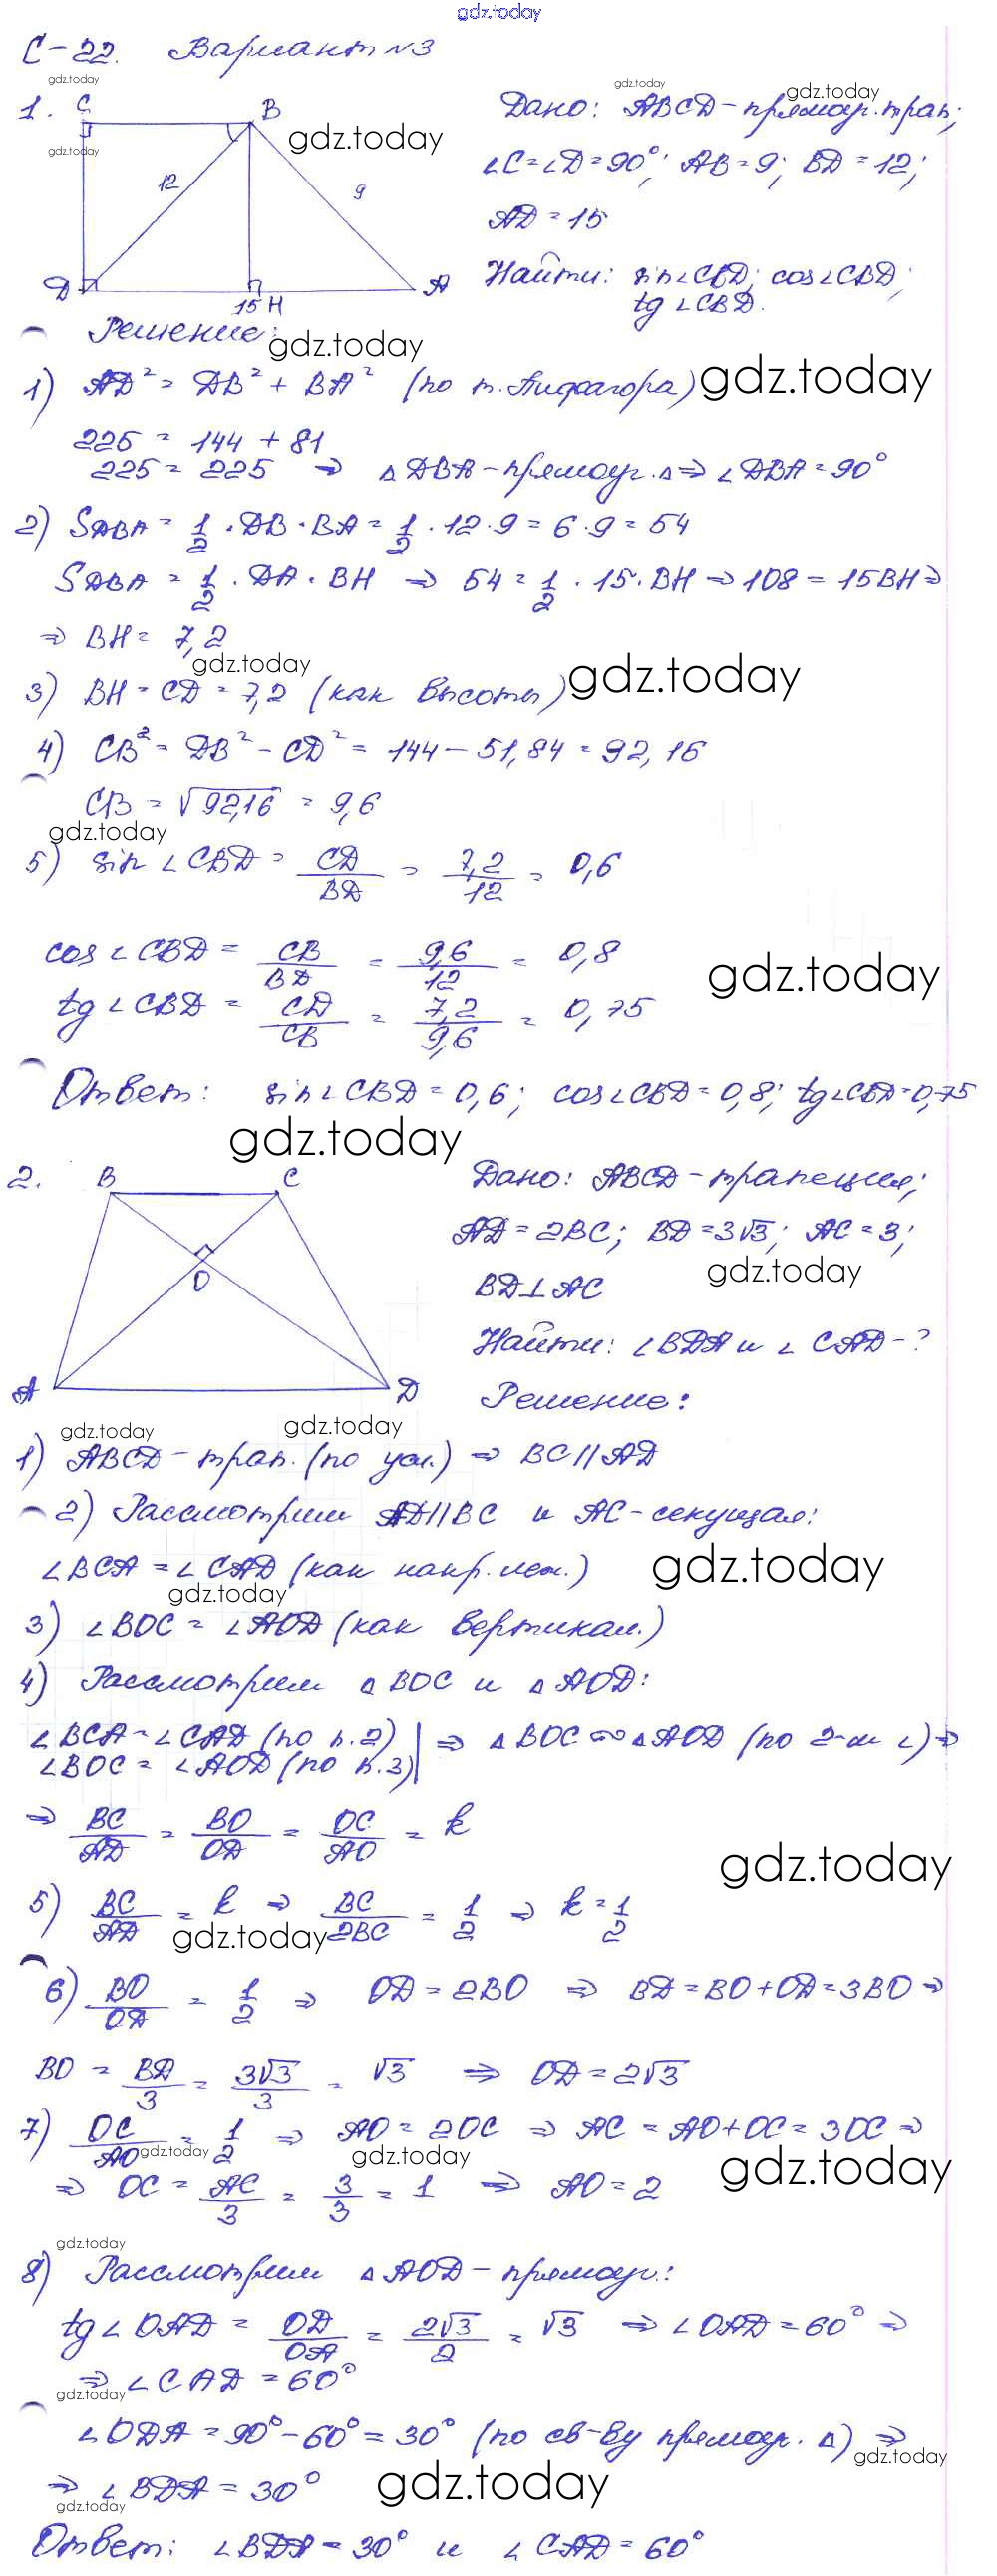 gdz.today
С-22. Вариант №3
gdz.today
1. C B
12 9
D 15 H A
Дано: ABCD - прямоуг. трап;
∠C=∠D=90°; AB=9; BD=12;
AD=15
Найти: sin∠CBD; cos∠CBD;
tg∠CBD.
Решение:
gdz.today
1) AD² = DB² + BA² (по т. Пифагора)
225 = 144 + 81
225 = 225 ⇒ △DBA - прямоуг. △ ⇒ ∠DBA = 90°
2) SDBA = 1/2 · DB · BA = 1/2 · 12 · 9 = 6 · 9 = 54
SDBA = 1/2 · DA · BH ⇒ 54 = 1/2 · 15 · BH ⇒ 108 = 15BH ⇒
⇒ BH = 7,2
gdz.today
3) BH = CD = 7,2 (как высоты)
4) CB² = DB² - CD² = 144 - 51,84 = 92,16
CB = √92,16 = 9,6
gdz.today
5) sin∠CBD = CD/BD = 7,2/12 = 0,6
cos∠CBD = CB/BD = 9,6/12 = 0,8
gdz.today
tg∠CBD = CD/CB = 7,2/9,6 = 0,75
Ответ: sin∠CBD = 0,6; cos∠CBD = 0,8; tg∠CBD = 0,75
gdz.today
2. B C
O
A D
Дано: ABCD - трапеция;
AD = 2BC; BD = 3√3; AC = 3;
gdz.today
BD⊥AC
Найти: ∠BDA и ∠CAD - ?
Решение:
gdz.today gdz.today
1) ABCD - трап. (по усл.) ⇒ BC || AD
2) Рассмотрим AD||BC и AC - секущая:
∠BCA = ∠CAD (как накр. леж.)
gdz.today gdz.today
3) ∠BOC = ∠AOD (как вертикал.)
4) Рассмотрим △BOC и △AOD:
∠BCA = ∠CAD (по п.2) | ⇒ △BOC ∾ △AOD (по 2-м ∠) ⇒
∠BOC = ∠AOD (по п.3) |
⇒ BC/AD = BO/OD = OC/AO = k
gdz.today
5) BC/AD = k ⇒ BC/2BC = 1/2 ⇒ k = 1/2
gdz.today
6) BO/OD = 1/2 ⇒ OD = 2BO ⇒ BD = BO + OD = 3BO ⇒
BO = BD/3 = 3√3/3 = √3 ⇒ OD = 2√3
7) OC/AO = 1/2 ⇒ AO = 2OC ⇒ AC = AO + OC = 3OC ⇒
gdz.today gdz.today gdz.today
⇒ OC = AC/3 = 3/3 = 1 ⇒ AO = 2
gdz.today
8) Рассмотрим △AOD - прямоуг.:
tg∠OAD = OD/OA = 2√3/2 = √3 ⇒ ∠OAD = 60° ⇒
⇒ ∠CAD = 60°
gdz.today
∠ODA = 90° - 60° = 30° (по св-ву прямоуг. △) ⇒
gdz.today
⇒ ∠BDA = 30°
gdz.today gdz.today
Ответ: ∠BDA = 30° и ∠CAD = 60°